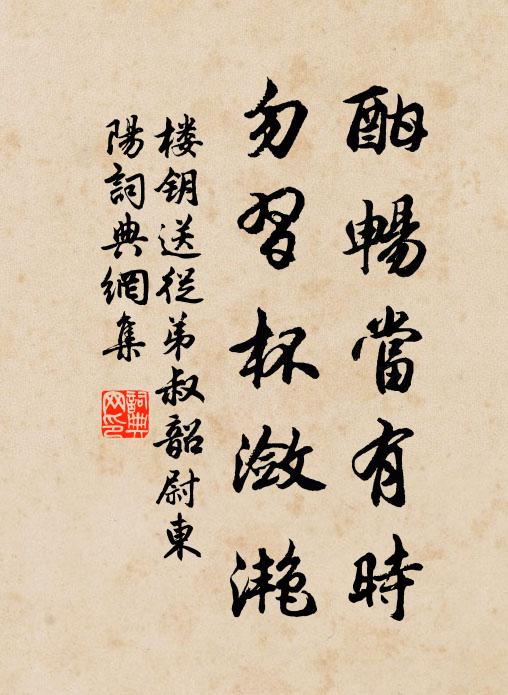 酣暢當有時
勿習杯瀲灔
楼钥送從弟叔韶尉東
陽詞典網集
詞典网印